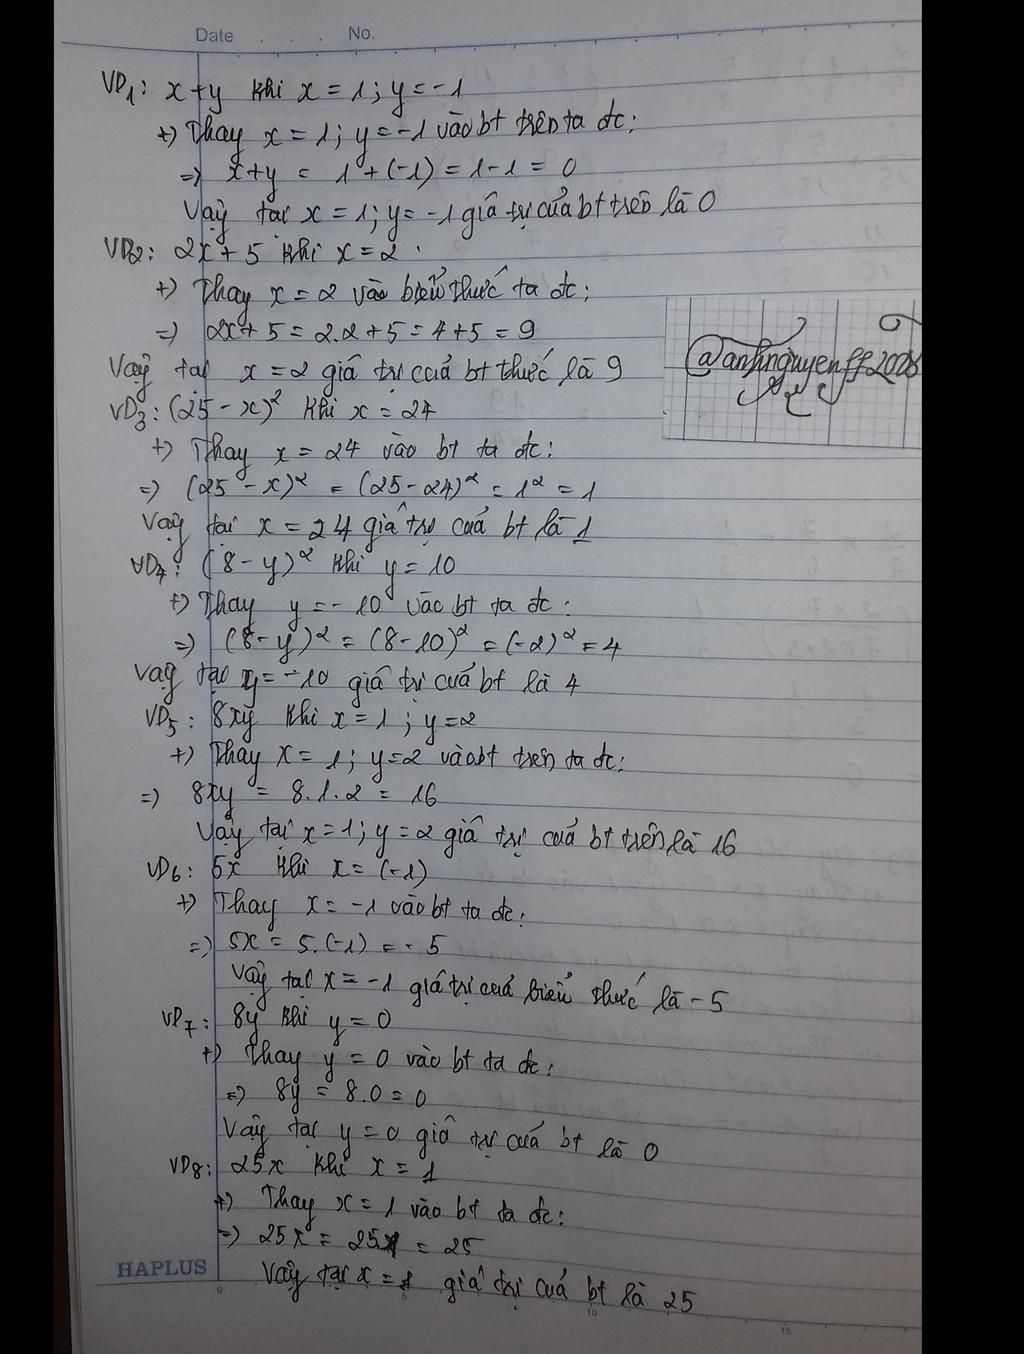 Date . . . No.
VD1: x+y khi x = 1; y = -1
+) Thay x = 1; y = -1 vào bt trên ta đc:
=> x+y = 1 + (-1) = 1-1 = 0
Vậy tại x = 1; y = -1 giá trị của bt trên là 0
VD2: 2x + 5 khi x = 2
+) Thay x = 2 vào biểu thức ta đc:
=> 2x + 5 = 2.2 + 5 = 4 + 5 = 9
@anhnguyenff2008
Vậy tại x = 2 giá trị của bt thức là 9
VD3: (25 - x)² khi x = 24
+) Thay x = 24 vào bt ta đc:
=> (25 - x)² = (25 - 24)² = 1² = 1
Vậy tại x = 24 giá trị của bt là 1
VD4: (8 - y)² khi y = 10
+) Thay y = -10 vào bt ta đc:
=> (8 - y)² = (8 - 10)² = (-2)² = 4
Vậy tại y = -10 giá trị của bt là 4
VD5: 8xy khi x = 1; y = 2
+) Thay x = 1; y = 2 vào bt trên ta đc:
=> 8xy = 8.1.2 = 16
Vậy tại x = 1; y = 2 giá trị của bt trên là 16
VD6: 5x khi x = (-1)
+) Thay x = -1 vào bt ta đc:
=> 5x = 5.(-1) = -5
Vậy tại x = -1 giá trị của biểu thức là -5
VD7: 8y khi y = 0
+) Thay y = 0 vào bt ta đc:
=> 8y = 8.0 = 0
Vậy tại y = 0 giá trị của bt là 0
VD8: 25x khi x = 1
+) Thay x = 1 vào bt ta đc:
=> 25x = 25.1 = 25
HAPLUS
Vậy tại x = 1 giá trị của bt là 25
0 5 10 15